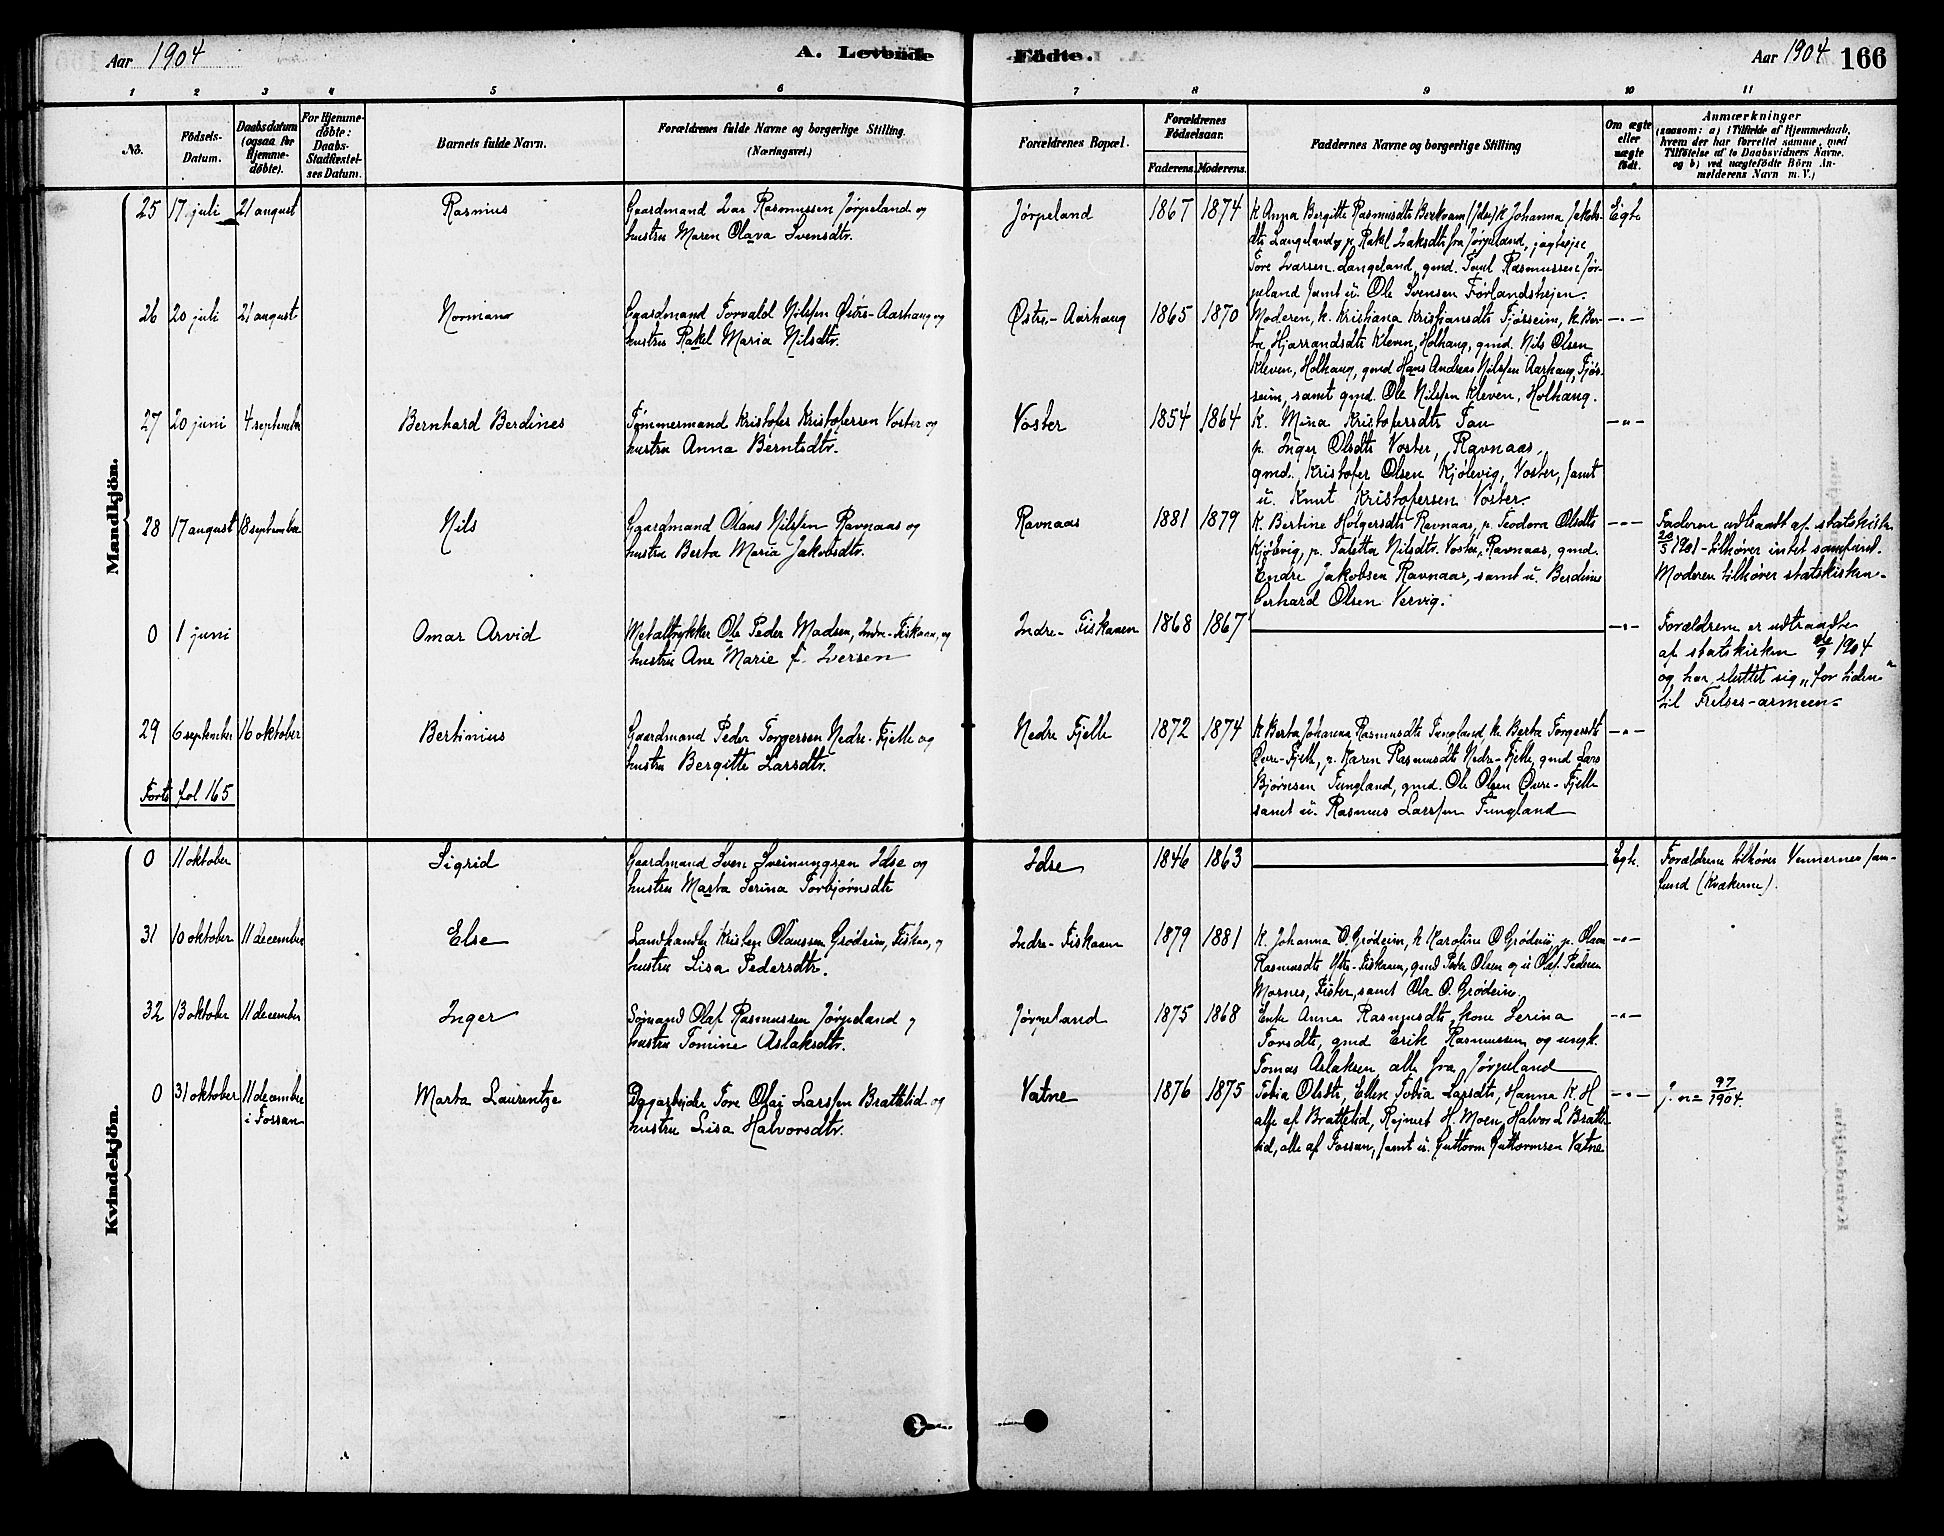 Aar 1904
A. Levende
Födte.
Aar 1904
166
1 2 3 4 5 6 7 8 9 10 11
No.
Födsels-
Datum.
Daabsdatum
(ogsaa for
Hjemme-
døbte).
For Hjemme-
døbte:
Daabs-
Stadfæstel-
ses Datum.
Barnets fulde Navn.
Forældrenes fulde Navne og borgerlige Stilling.
(Næringsvei.)
Forældrenes Bopæl.
Forældrenes
Fødselsaar.
Faderens. Moderens.
Faddernes Navne og borgerlige Stilling
Om ægte
eller
uægte
født.
Anmærkninger
(saasom: a) i Tilfælde af Hjemmedaab,
hvem der har forrettet samme, med
Tilføielse af to Daabsvidners Navne.
og b) ved uægtefødte Börn An-
melderens Navn m. V.)
Mandkjön.
25 17 juli 21 august
Rasmus
Gaardmand Lar Rasmussen Jørpeland og
hustru Maren Olava Svensdtr.
Jørpeland
1867 1874
K Anna Bergitte Rasmusdtr Berkvam (Idse) K Johanna Jakobs-
dtr Langeland og p. Rakel Isaksdtr fra Jørpeland,
Tore Ivarsen Langeland, gmd. Paul Rasmussen Jør-
peland samt u. Ole Svensen Førlandshejen.
Egte
26 20 juli 21 august
Norman
Gaardmand Torvald Nilssen Østre-Aarhaug og
hustru Rakel Maria Nilsdtr.
Østre-Aarhaug
1865 1870
Moderen, k. Kristiana Kristiansdtr Fjøsseim, k. Ber-
ta Hjarrandsdtr Kleven, Holhaug, gmd. Nils Olsen
Kleven, Holhaug, gmd Hans Andreas Nilssen Aarhaug, Fjøs-
seim, samt gmd. Ole Nilssen Kleven, Holhaug.
—"—
27 20 juni 4 september
Bernhard Berdines
Tømmermand Kristofer Kristofersen Voster og
hustru Anna Berntsdtr.
Voster
1854 1864
K. Mina Kristofersdtr Tau
p. Inger Olsdtr Voster, Ravnaas,
gmd. Kristofer Olsen Kjølevig, Voster, samt
u. Knut Kristofersen Voster.
—"—
28 17 august 18 september
Nils
Gaardmand Olaus Nilssen Ravnaas og
hustru Berta Maria Jakobsdtr.
Ravnaas
1881 1879
K. Bertine Holgersdtr Ravnaas, p. Teodora Olsdtr
Kjølevig, p. Taletta Nilsdtr. Voster, Ravnaas, gmd.
Endre Jakobsen Ravnaas, samt u. Berdines
Gerhard Olsen Vervig.
—"—
Faderen udtraadt af statskirken
20/5 1901 - tilhører intet samfund.
Moderen tilhører statskirken.
0 1 juni
Omar Arvid
Metaltrykker Ole Peder Madsen, Indre-Fiskaaen, og
hustru Ane Marie f. Iversen
Indre-Fiskaaen
1868 1867
—"—
Forældrene er udtraadte
af statskirken 1904
og har sluttet sig "for tiden"
til Frelses-armeen.
29 6 september 16 oktober
Bertinius
Gaardmand Peder Torgersen Nedre-Fjelle og
hustru Bergitte Larsdtr.
Nedre Fjelle
1872 1874
K Berta Johanna Rasmusdtr Tungland k. Berta Torgersdtr
Øvre-Fjelle, p. Karen Rasmusdtr Nedre-Fjelle, gmd Lars
Bjørnsen Tungland, gmd. Ole Olsen Øvre-Fjelle
samt u. Rasmus Larssen Tungland
—"—
Forts fol 165
Kvindekjön.
0 11 oktober
Sigrid
Gaardmand Sven Sveinungsen Idse og
hustru Marta Serina Torbjørnsdtr
Idse
1846 1863
Egte.
Forældrene tilhører Vennernes sam-
fund (Kvækerne).
31 10 oktober 11 december
Else
Landhandler Kristen Olaussen Grødeim, Fiskaa, og
hustru Lisa Pedersdtr.
Indre-Fiskaaen
1879 1881
K. Johanna O. Grødeim, k Karoline O Grødeim, p. Olava
Rasmusdtr Ytre-Fiskaaen, gmd Peder Olsen og u Olaf Pedersen
Mosnes, Fister, samt Ola O. Grødeim.
—"—
32 13 oktober 11 december
Inger
Sømand Olaf Rasmussen Jørpeland og
hustru Tomine Aslaksdtr.
Jørpeland
1875 1868
Enke Anna Rasmusdtr, kone Serina
Torsdtr, gmd Erik Rasmussen og ungk.
Tomas Aslaksen alle fra Jørpeland
—"—
0 31 oktober 11 december
i Fossan
Marta Laurentze
Dagarbeider Tore Olai Larssen Brattelid og
hustru Lisa Halvorsdtr.
Vatne
1876 1875
Tobia Olsdtr, Ellen Tobia Larsdtr, Hanna K. H
alle af Brattelid, Rejnert H. Moen, Halvor L Bratte-
lid, alle af Fossan, samt u. Guttorm Guttormsen Vatne
—"—
j. n= 97/1904.